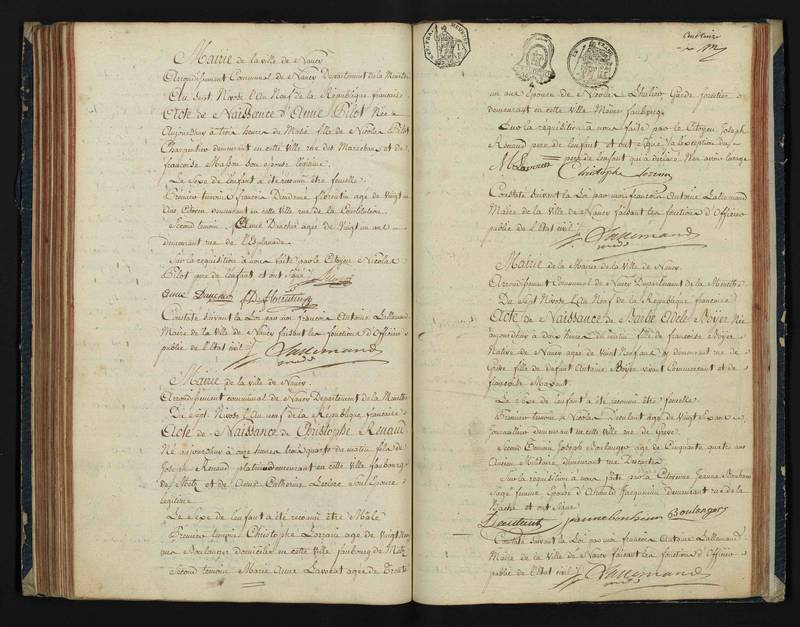 Mairie de la ville de Nancy
Arrondissement Communal de Nancy Departement de la Meurthe
Du Sept Nivose l'An Neuf de la République française
Acte de Naissance d'Anne Pilot Née
Aujourdhuy à trois heures du Matin fille de Nicolas Pilot
Charpentier demeurant en cette ville rue des Marechaux et de
françoise Masson son épouse légitime
Le Sexe de l'enfant a été reconnu être femelle
Premier temoin françois Dieudonné florentin agé de Vingt un
Ans, Citoyen demeurant en cette ville rue de la Constitution
Second temoin Anne agée de Vingt un ans
demeurant rue de l'Esplanade
Sur la requisition à nous faite par le Citoyen Nicolas
Pilot pere de l'enfant et ont Signé
florentin
Constaté suivant la Loi par moi françois Antoine Lallemand
Maire de la Ville de Nancy faisant les fonctions d'Officier
public de l'Etat civil
Lallemand
Mairie de la ville de Nancy
Arrondissement communal de Nancy Departement de la Meurthe
Du Sept Nivose l'An neuf de la République française
Acte de Naissance de Christophe Renaud
Né aujourdhuy à onze heures trois quarts du matin fils de
Joseph Renaud demeurant en cette ville faubourg
de Metz et de Anne Catherine Leclerc Son Epouse
légitime
Le Sexe de l'enfant a été reconnu être Mâle
Premier temoin Christophe agé de Vingt Neuf
ans Boulanger domicilié en cette ville faubourg de Metz
Second temoin Marie Anne agée de Trente
un ans Epouse de Nicolas Garde forestier
demeurant en cette Ville Même faubourg
Sur la requisition à nous faite par le Citoyen Joseph
Renaud pere de l'enfant et ont Signé à l'exception du
pere de l'enfant qui a déclaré N'en avoir l'usage
Christophe
Constaté suivant la Loi par moi françois Antoine Lallemand
Maire de la Ville de Nancy faisant les fonctions d'Officier
public de l'Etat civil
Lallemand
Mairie de la Mairie de la Ville de Nancy
Arrondissement Communal de Nancy Departement de la Meurthe
Du Sept Nivose l'An Neuf de la République française
Acte de Naissance de Barbe Adele Boyer Née
aujourdhuy à deux heures du matin fille de françoise Boyer
Native de Nancy agée de Vingt Neuf ans y demeurant rue de
Grève fille de défunt Antoine Boyer vivant Commercant et de
françoise
Le Sexe de l'enfant a été reconnu être femelle
Premier temoin Nicolas agé de Vingt Six ans
Journallier demeurant en cette ville rue de Grève
Second Temoin Joseph Boulanger agé de Cinquante quatre ans
Ancien Militaire demeurant rue
Sur la requisition à nous faite par la Citoyenne Jeanne Bonhom
Sage femme Epouse d'Etienne Jacqueminy demeurant rue de la
et ont Signé
jeanne bonhom Boulanger
Constaté suivant la Loi par moi françois Antoine Lallemand
Maire de la Ville de Nancy faisant les fonctions d'Officier
public de l'Etat civil
Lallemand